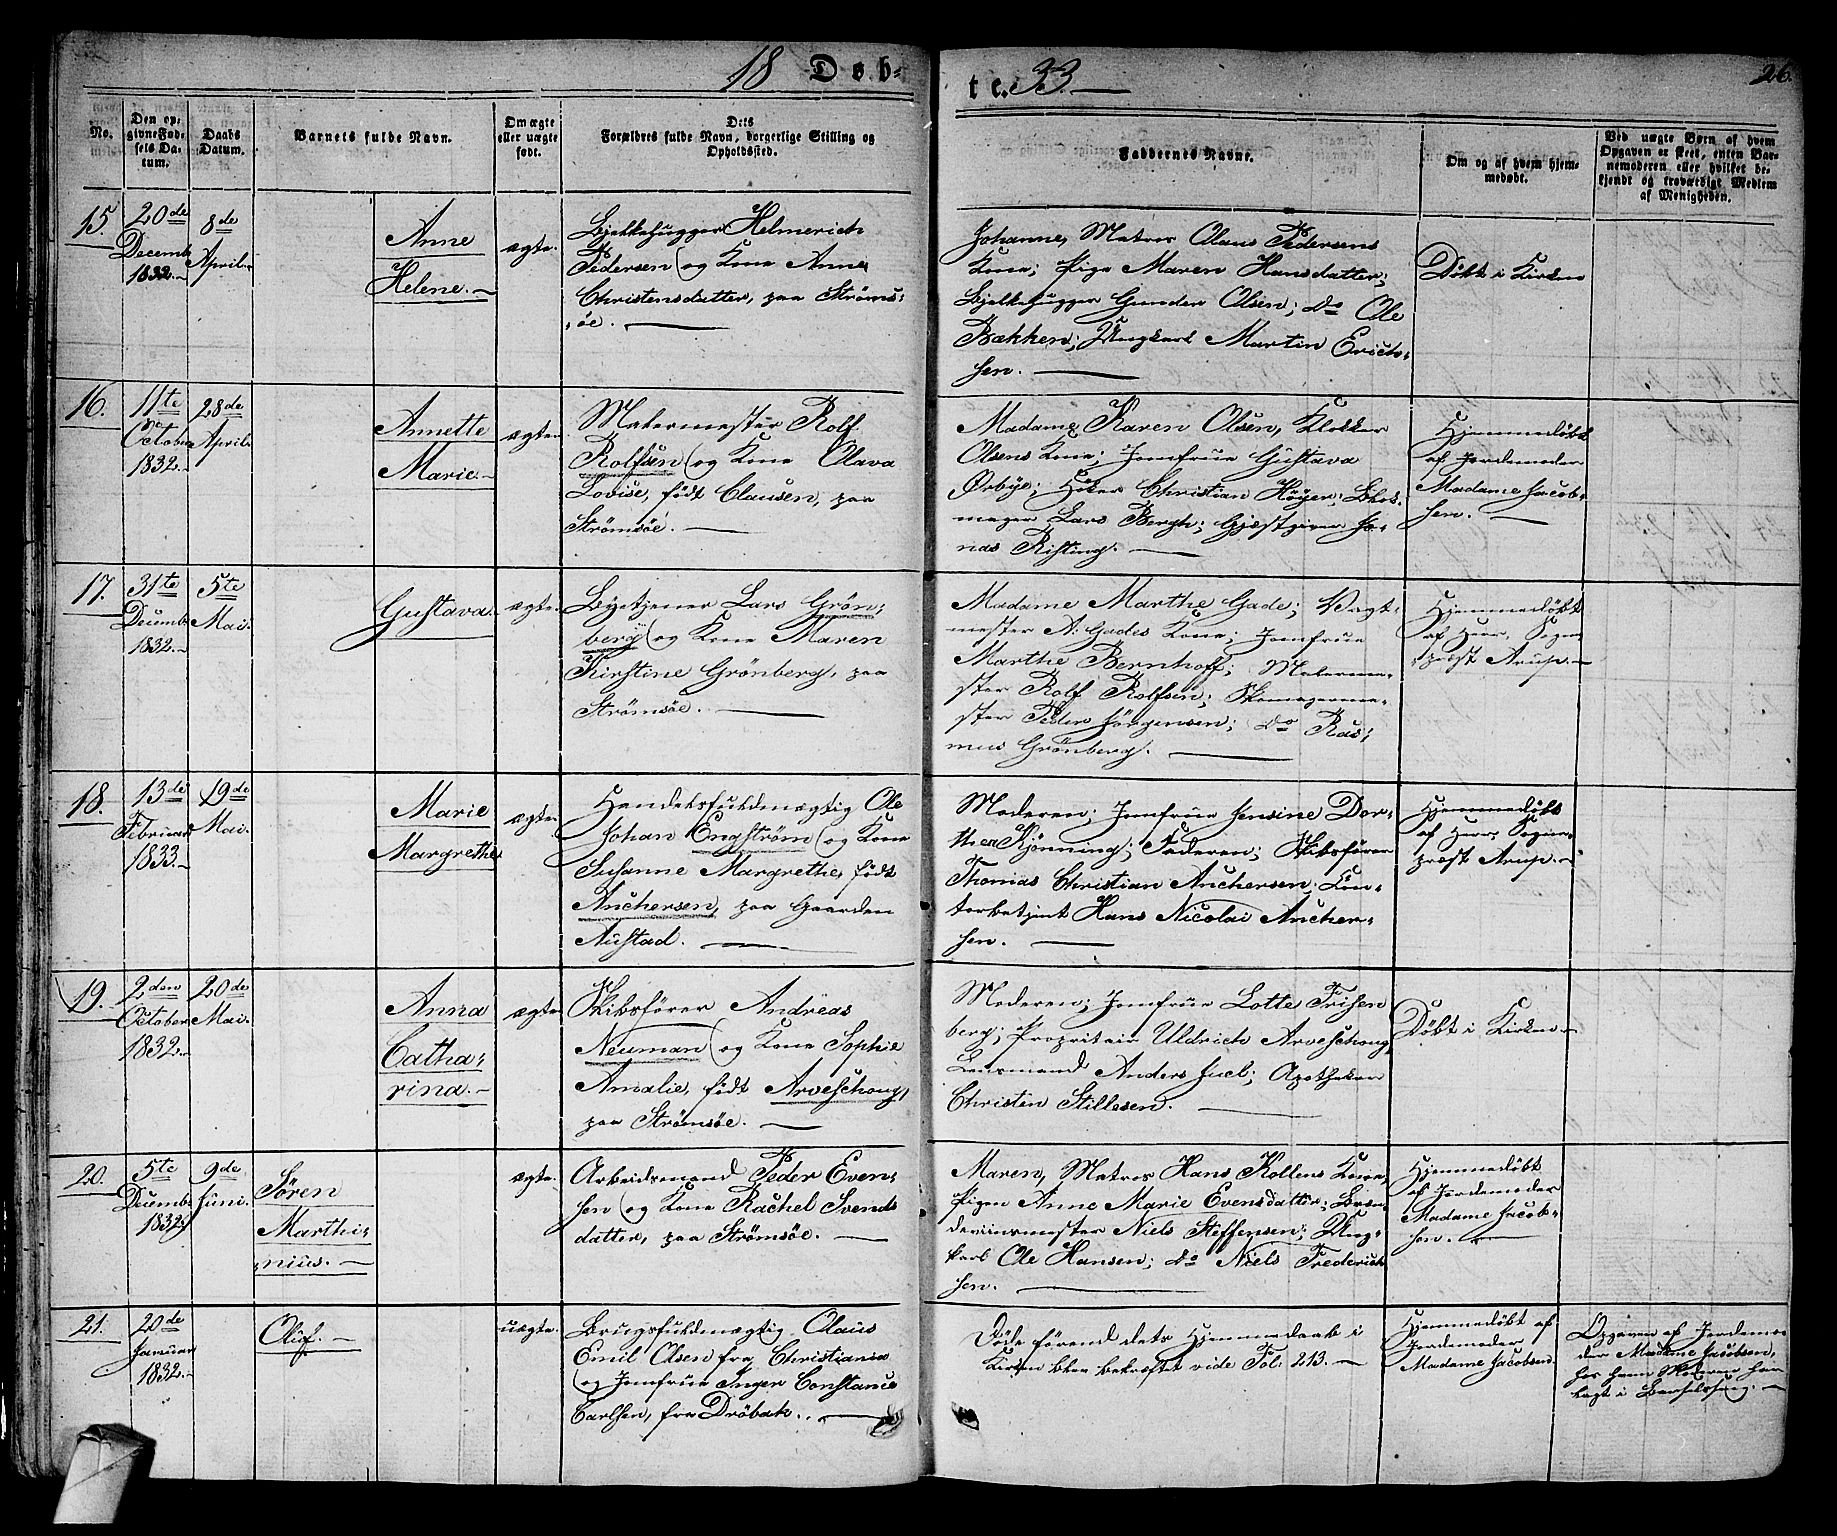 18 Døb-
te. 33.
26.
No.
Den op-
givne Fød-
sels Da-
tum.
Daabs
Datum.
Barnets fulde Navn.
Om ægte
eller uægte
født.
Dets
Forældres fulde Navn, borgerlige Stilling og
Opholdssted.
Faddernes Navne.
Om og af hvem hjem-
medøbt.
Ved uægte Børn af hvem
Opgaven er skeet, enten Bar-
nemoderen eller hvilket be-
kjendt og troværdigt Medlem
af Menigheden.
15.
20de
Decemb
1832.
8de
April.
Anne
Helene.
ægte.
Bjelkehugger Helmerich
Pedersen og Kone Anne
Christensdatter, paa Strøms-
øe.
Johanne, Matros Olaus Pedersens
Kone; Pige Maren Hansdatter;
Bjelkehugger Gunder Olsen; do Ole
Bækken; Ungkarl Martin Erich-
sen.
Døbt i Kirken
16.
11te
October
1832.
28de
April.
Annette
Marie.
ægte.
Matermester Rolf
Rolfsen og Kone Olava
Lovise, født Clausen, paa
Strømsøe.
Madame Karen Olsen, Klokker
Olsens Kone; Jomfrue Gustava
Ørbye; Høker Christian Høyer; Blok-
mager Lars Bergh; Gjæstgiver Jo-
nas Risting.
Hjemmedøbt
af Jordemoder
Madame Jacob-
sen.
17.
31te
Decemb
1832.
5te
Mai.
Gustava.
ægte.
Byetjener Lars Grøn-
berg og Kone Maren
Kirstine Grønberg, paa
Strømsøe.
Madame Marthe Gade; Vagt-
mester A: Gades Kone; Jomfrue
Marthe Bernhoff; Materme-
ster Rolf Rolfsen; Skomagerme-
ster Peder Jørgensen; do Ras-
mus Grønberg.
Hjemmedøbt
af Herr Sogne-
præst Arup.
18.
13de
Februar
1833.
19de
Mai.
Marie
Margrethe
ægte.
Handelsfuldmægtig Ole
Johan Engstrøm og Kone
Susanne Margrethe, født
Anchersen, paa Gaarden
Austad.
Moderen; Jomfrue Jensine Dor-
thea Kjønning; Faderen; Skibsfører
Thomas Christian Anchersen; Con-
torbetjent Hans Nicolai Ancher-
sen.
Hjemmedøbt
af Herr Sogne-
præst Arup.
19.
2den
October
1832.
20de
Mai.
Anna
Catha-
rina.
ægte.
Skibsfører Andreas
Neuman og Kone Sophie
Amalie, født Arveschoug,
paa Strømsøe.
Moderen; Jomfrue Lotte Frisen
berg; Propritair Uldrich Arveschoug
Lensmand Anders Juel; Apotheker
Christen Stillesen.
Døbt i Kirken.
20.
5te
Decemb
1832.
9de
Juni.
Søren
Marthi-
nius.
ægte.
Arbeidsmand Peder Even-
sen og Kone Rachel Svends
datter, paa Strømsøe.
Maren, Matros Hans Kollens Kone
Pigen Anne Marie Evensdatter; Bræn-
deviinsmester Niels Steffensen; Ung-
karl Ole Hansen; do Niels Frederich
sen.
Hjemmedøbt
af Jordemoder
Madame Jacob-
sen.
21.
20de
Januar
1832.
Oluf.
uægte.
Brugsfuldmægtig Olaus
Emil Olsen fra Christiania
og Jomfrue Inger Constance
Carlsen, fra Drøbak.
Døde førend dets Hjemmedaab i
Kirken blev bekræftet vide Fol: 213.
Hjemmedøbt af
Jordemoder
Madame Jacobsen.
Opgaven af Jordemo-
der Madame Jacobsen,
hos hvem Moderen har
lagt i Barselseng.